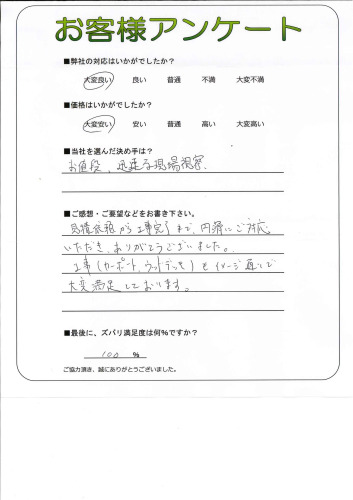 お客様アンケート
■弊社の対応はいかがでしたか?
大変良い 良い 普通 不満 大変不満
■価格はいかがでしたか?
大変安い 安い 普通 高い 大変高い
■当社を選んだ決め手は?
お値段、迅速な現場視察
■ご感想・ご要望などをお書き下さい。
見積依頼から工事完了まで、円滑にご対応
いただき、ありがとうございました。
工事(カーポート、ウッドデッキ)もイメージ通りで
大変満足しております。
■最後に、ズバリ満足度は何%ですか?
100 %
ご協力頂き、誠にありがとうございました。